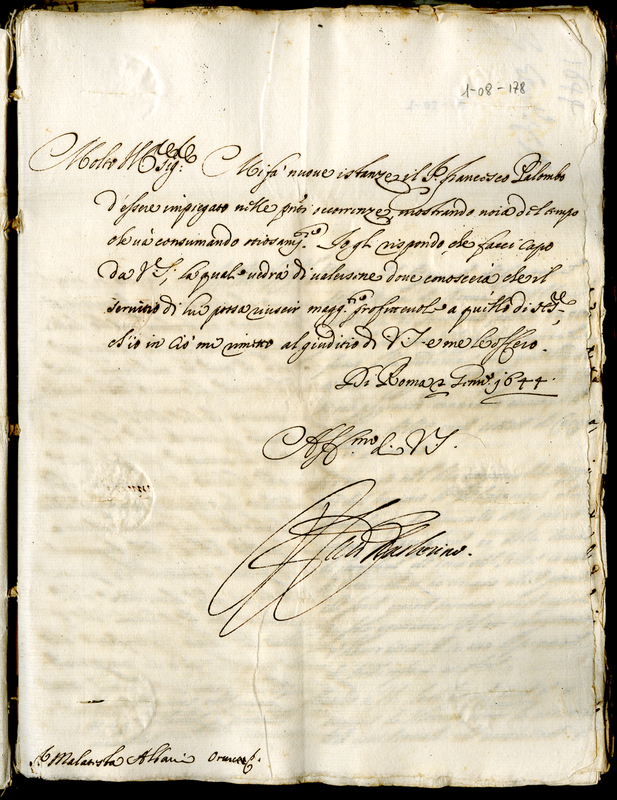 1-08-178
Molto Ill.re Sig.r Mi fà nuove istanze il S.r Francesco Palombo
d'essere impiegato nelle pnti occorrenze, mostrando noia del tempo
che và consumando otiosam.te Io gli rispondo, che facci capo
da V.S., la quale vedrà di valersene dove conoscerà che il
servitio di lui possa riuscir magg.te profittevole a quello di
ch'io in ciò me rimetto al giuditio di V.S. e me le offero.
Di Roma 2 Genn.o 1644.
Aff.mo di V.S.
Card Barberino.
S.r Malatesta Albani Orvieto.